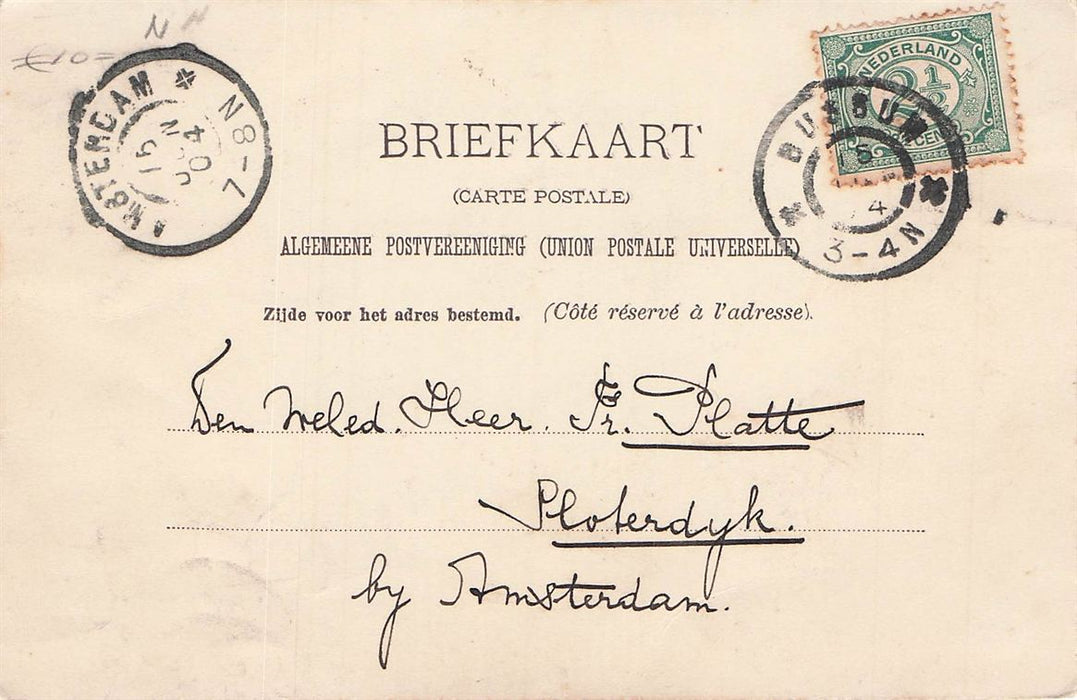 N N
€10=
AMSTERDAM
N8-7
15 JUN 04
NEDERLAND
2½
CENT
BUSSUM
3-4N
BRIEFKAART
(CARTE POSTALE)
ALGEMEENE POSTVEREENIGING (UNION POSTALE UNIVERSELLE)
Zijde voor het adres bestemd. (Côté réservé à l'adresse).
Den Weled. Heer. Fr. Platte
Sloterdyk.
by Amsterdam.